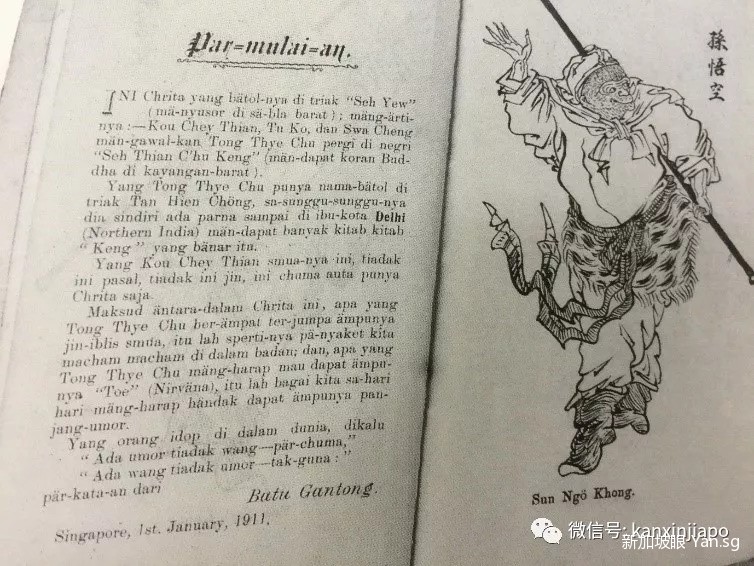 Par=mulai=an.
INI Chrita yang bätol-nya di triak "Seh Yew"
(mä-nyusor di sä-bla barat); mäng-ärti-
nya:—Kou Chey Thian, Tu Ko, dan Swa Cheng
män-gawal-kan Tong Thye Chu pergi di negri
"Seh Thian C'hu Keng" (män-dapat koran Bud-
dha di kayangan-barat).
Yang Tong Thye Chu punya nama-bätol di
triak Tan Hien Chöng, sa-sunggu-sunggu-nya
dia sindiri ada parna sampai di ibu-kota Delhi
(Northern India) män-dapat banyak kitab kitab
"Keng" yang bänar itu.
Yang Kou Chey Thian smua-nya ini, tiadak
ini pasal, tiadak ini jin, ini chuma auta punya
Chrita saja.
Maksud äntara-dalam Chrita ini, apa yang
Tong Thye Chu ber-ämpat ter-jumpa ämpunya
jin-iblis smua, itu lah sperti-nya pä-nyaket kita
macham macham di dalam badan; dan, apa yang
Tong Thye Chu mäng-harap mau dapat ämpu-
nya "Toe" (Nirväna), itu lah bagai kita sa-hari
hari mäng-harap händak dapat ämpunya pan-
jang-umor.
Yang orang idop di dalam dunia, dikalu
"Ada umor tiadak wang—pär-chuma,"
"Ada wang tiadak umor—tak-guna:"
pär-kata-an dari
Batu Gantong.
Singapore, 1st. January, 1911.
孫悟空
Sun Ngö Khong.
微信号: kanxinjiapo
新加坡眼 Yan.sg